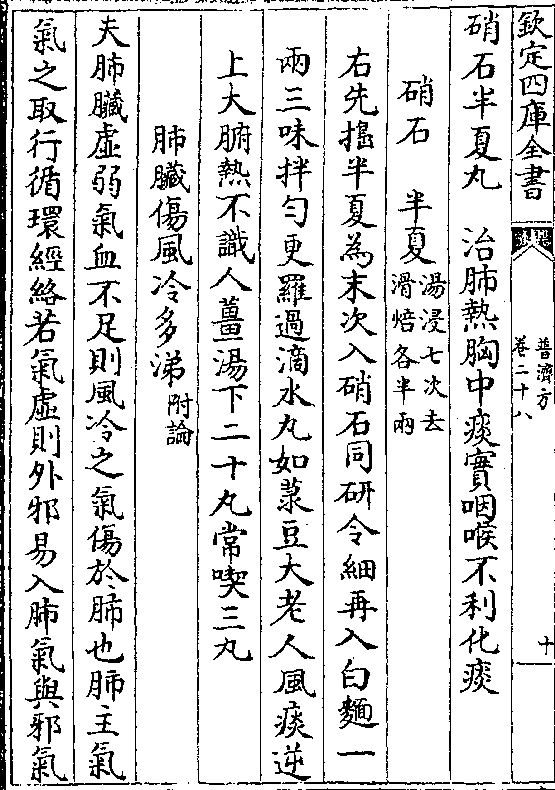 欽定四庫全書
普濟方
卷二十八
十
硝石半夏丸　治肺熱胸中痰實咽喉不利化痰
硝石　半夏湯浸七次去滑焙各半兩
右先搗半夏為末次入硝石同研令細再入白麵一
兩三味拌勻更羅過滴水丸如菉豆大老人風痰逆
上大腑熱不識人薑湯下二十丸常喫三丸
肺臟傷風冷多涕附論
夫肺臟虛弱氣血不足則風冷之氣傷於肺也肺主氣
氣之取行循環經絡若氣虛則外邪易入肺氣與邪氣